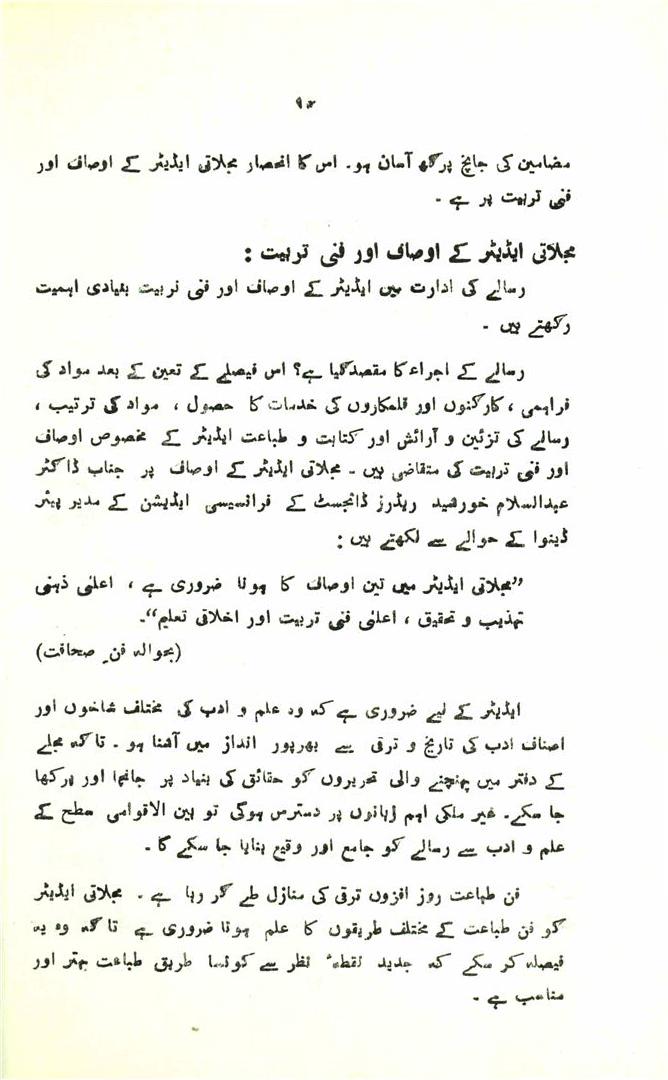 مضامین کی جانچ پرکھ آسان ہو۔ اس کا انحصار مجلاتی ایڈیٹر کے اوصاف اور
فنی تربیت پر ہے ۔
مجلاتی ایڈیٹر کے اوصاف اور فنی تربیت :
رسالے کی ادارت میں ایڈیٹر کے اوصاف اور فنی تربیت بنیادی اہمیت
رکھتے ہیں ۔
رسالے کے اجراء کا مقصد کیا ہے؟ اس فیصلے کے تعین کے بعد مواد کی
فراہمی ، کارکنوں اور قلمکاروں کی خدمات کا حصول ، مواد کی ترتیب ،
رسالے کی تزئین و آرائش اور کتابت و طباعت ایڈیٹر کے مخصوص اوصاف
اور فنی تربیت کی متقاضی ہیں ۔ مجلاتی ایڈیٹر کے اوصاف پر جناب ڈاکٹر
عبدالسلام خورشید ریڈرز ڈائجسٹ کے فرانسیسی ایڈیشن کے مدیر پیئر
ڈینوا کے حوالے سے لکھتے ہیں :
”مجلاتی ایڈیٹر میں تین اوصاف کا ہونا ضروری ہے ، اعلیٰ ذہنی
تہذیب و تحقیق ، اعلیٰ فنی تربیت اور اخلاقی تعلیم“۔
(بحوالہ فنِ صحافت)
ایڈیٹر کے لیے ضروری ہے کہ وہ علم و ادب کی مختلف شاخوں اور
اصناف ادب کی تاریخ و ترقی سے بھرپور انداز میں آشنا ہو ۔ تاکہ مجلے
کے دفتر میں پہنچنے والی تحریروں کو حقائق کی بنیاد پر جانچا اور پرکھا
جا سکے۔ غیر ملکی اہم زبانوں پر دسترس ہوگی تو بین الاقوامی سطح کے
علم و ادب سے رسالے کو جامع اور وقیع بنایا جا سکے گا ۔
فن طباعت روز افزوں ترقی کی منازل طے کر رہا ہے ۔ مجلاتی ایڈیٹر
کو فن طباعت کے مختلف طریقوں کا علم ہونا ضروری ہے تاکہ وہ یہ
فیصلہ کر سکے کہ جدید نقطہٴ نظر سے کونسا طریق طباعت بہتر اور
مناسب ہے ۔